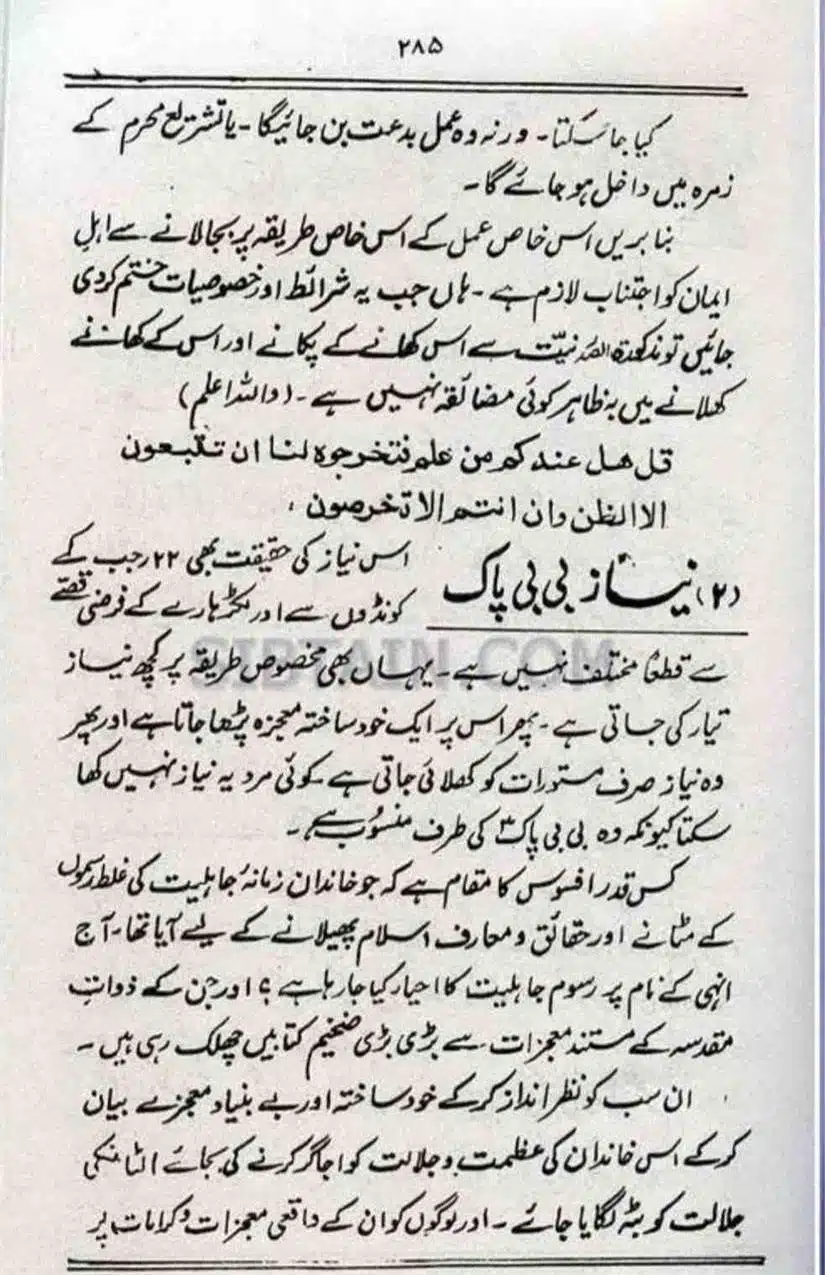 ۲۸۵
کیا جا سکتا۔ ورنہ وہ عمل بدعت بن جائیگا۔ یا تشریع محرم کے
زمرہ میں داخل ہو جائے گا۔
بنا بریں اس خاص عمل کے اس خاص طریقہ پر بجا لانے سے اہل
ایمان کو اجتناب لازم ہے۔ ہاں جب یہ شرائط اور خصوصیات ختم کر دی
جائیں تو نیّت سے اس کھانے کے پکانے اور اس کے کھانے
کھلانے میں بہ ظاہر کوئی مضائقہ نہیں ہے۔ (واللہ اعلم)
قل هل عندكم من علم فتخرجوه لنا ان تتبعون
الا الظن وان انتم الا تخرصون :
(۲) نیاز بی بی پاک
اس نیاز کی حقیقت بھی ۲۲ رجب کے
کونڈوں سے اور لکڑ ہارے کے فرضی قصّے
SIBTAIN.COM
سے قطعاً مختلف نہیں ہے۔ یہاں بھی مخصوص طریقہ پر کچھ نیاز
تیار کی جاتی ہے۔ پھر اس پر ایک خود ساختہ معجزہ پڑھا جاتا ہے اور پھر
وہ نیاز صرف مستورات کو کھلائی جاتی ہے۔ کوئی مرد یہ نیاز نہیں کھا
سکتا کیونکہ وہ بی بی پاکؑ کی طرف منسُوب ہے۔
کس قدر افسوس کا مقام ہے کہ جو خاندان زمانۂ جاہلیت کی غلط رسموں
کے مٹانے اور حقائق و معارف اسلام پھیلانے کے لیے آیا تھا۔ آج
انہی کے نام پر رسوم جاہلیت کا احیار کیا جا رہا ہے ؟ اور جن کے ذواتِ
مقدسہ کے مستند معجزات سے بڑی بڑی ضخیم کتابیں چھلک رہی ہیں۔
ان سب کو نظر انداز کر کے خود ساختہ اور بے بنیاد معجزے بیان
کر کے اس خاندان کی عظمت و جلالت کو اجاگر کرنے کی بجائے الٹا انکی
جلالت کو بٹہ لگایا جائے۔ اور لوگوں کو ان کے واقعی معجزات و کرامات پر